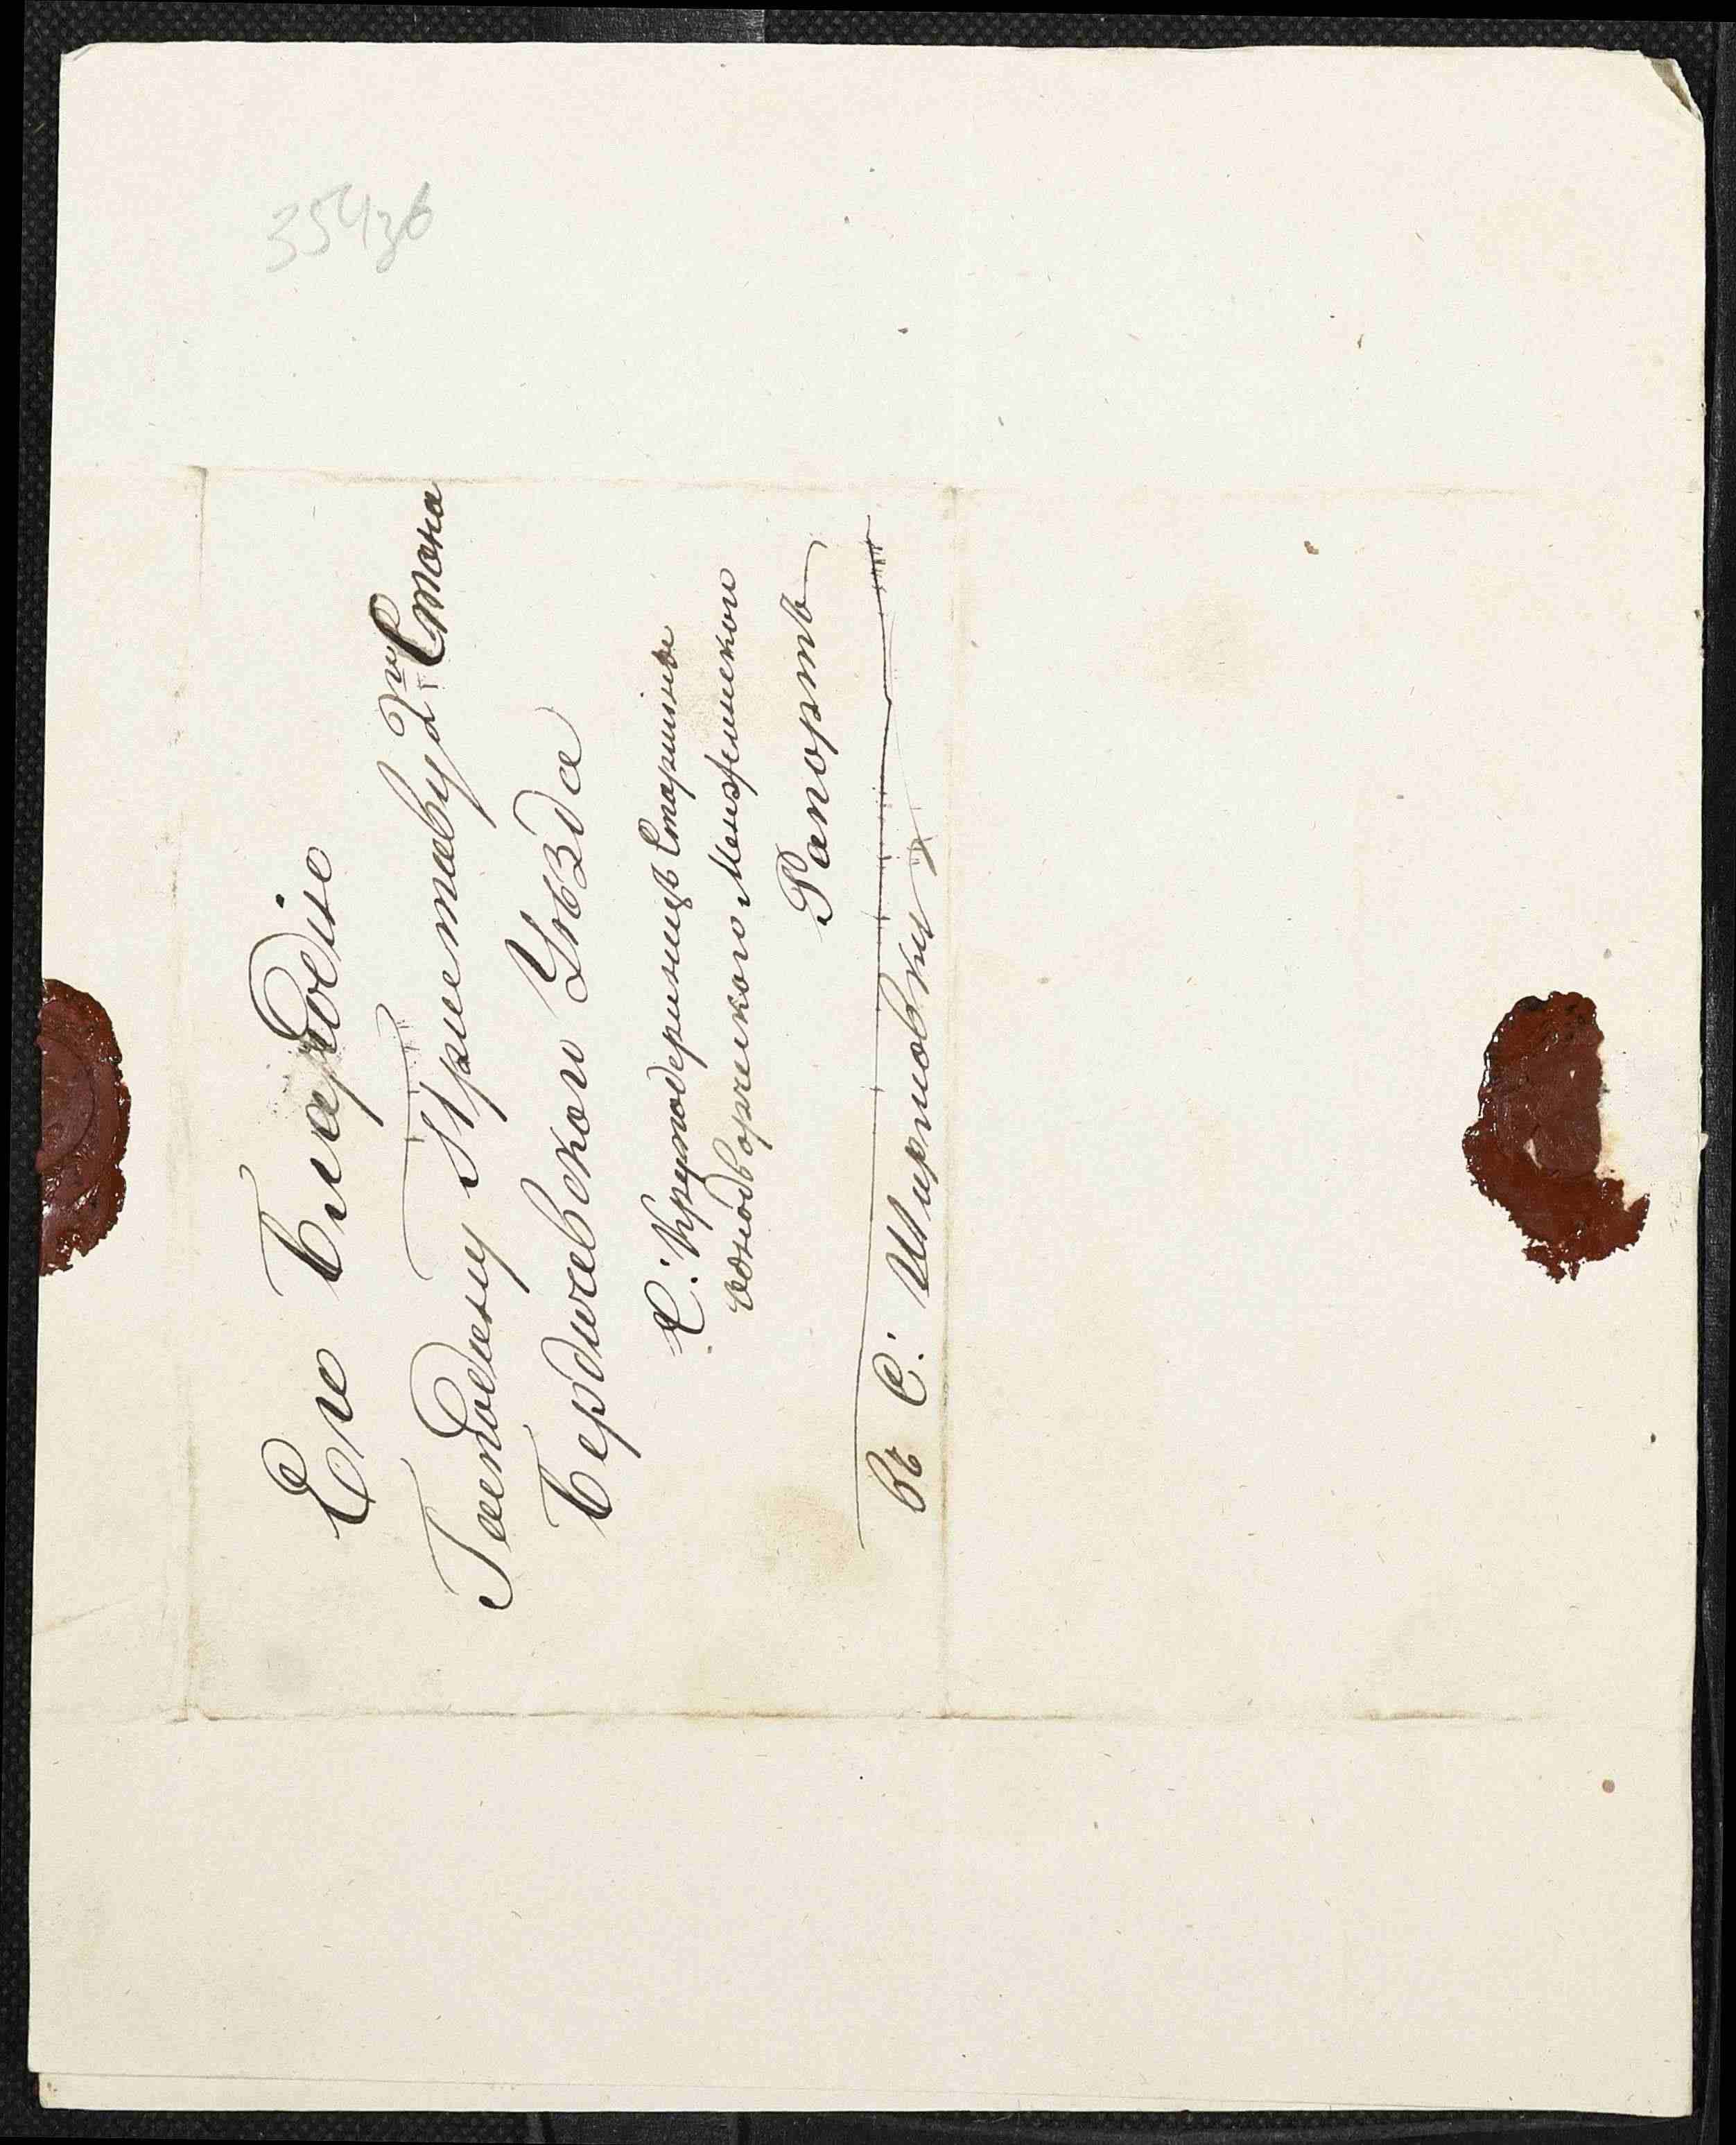 35436
Его Благородію
Господину Приставу 2го Стана
Бердичевскаго Уѣзда
С: Крутодеринецъ Старшины
однодворческаго Менжинскаго
Рапортъ
Въ С: Ширмовку